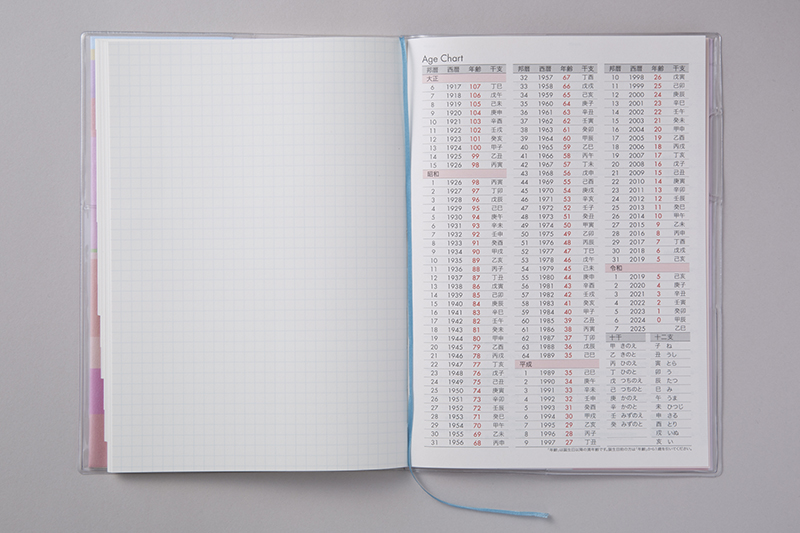 Age Chart
邦暦 西暦 年齢 干支
大正
6 1917 107 丁巳
7 1918 106 戊午
8 1919 105 己未
9 1920 104 庚申
10 1921 103 辛酉
11 1922 102 壬戌
12 1923 101 癸亥
13 1924 100 甲子
14 1925 99 乙丑
15 1926 98 丙寅
昭和
1 1926 98 丙寅
2 1927 97 丁卯
3 1928 96 戊辰
4 1929 95 己巳
5 1930 94 庚午
6 1931 93 辛未
7 1932 92 壬申
8 1933 91 癸酉
9 1934 90 甲戌
10 1935 89 乙亥
11 1936 88 丙子
12 1937 87 丁丑
13 1938 86 戊寅
14 1939 85 己卯
15 1940 84 庚辰
16 1941 83 辛巳
17 1942 82 壬午
18 1943 81 癸未
19 1944 80 甲申
20 1945 79 乙酉
21 1946 78 丙戌
22 1947 77 丁亥
23 1948 76 戊子
24 1949 75 己丑
25 1950 74 庚寅
26 1951 73 辛卯
27 1952 72 壬辰
28 1953 71 癸巳
29 1954 70 甲午
30 1955 69 乙未
31 1956 68 丙申
邦暦 西暦 年齢 干支
32 1957 67 丁酉
33 1958 66 戊戌
34 1959 65 己亥
35 1960 64 庚子
36 1961 63 辛丑
37 1962 62 壬寅
38 1963 61 癸卯
39 1964 60 甲辰
40 1965 59 乙巳
41 1966 58 丙午
42 1967 57 丁未
43 1968 56 戊申
44 1969 55 己酉
45 1970 54 庚戌
46 1971 53 辛亥
47 1972 52 壬子
48 1973 51 癸丑
49 1974 50 甲寅
50 1975 49 乙卯
51 1976 48 丙辰
52 1977 47 丁巳
53 1978 46 戊午
54 1979 45 己未
55 1980 44 庚申
56 1981 43 辛酉
57 1982 42 壬戌
58 1983 41 癸亥
59 1984 40 甲子
60 1985 39 乙丑
61 1986 38 丙寅
62 1987 37 丁卯
63 1988 36 戊辰
64 1989 35 己巳
平成
1 1989 35 己巳
2 1990 34 庚午
3 1991 33 辛未
4 1992 32 壬申
5 1993 31 癸酉
6 1994 30 甲戌
7 1995 29 乙亥
8 1996 28 丙子
9 1997 27 丁丑
邦暦 西暦 年齢 干支
10 1998 26 戊寅
11 1999 25 己卯
12 2000 24 庚辰
13 2001 23 辛巳
14 2002 22 壬午
15 2003 21 癸未
16 2004 20 甲申
17 2005 19 乙酉
18 2006 18 丙戌
19 2007 17 丁亥
20 2008 16 戊子
21 2009 15 己丑
22 2010 14 庚寅
23 2011 13 辛卯
24 2012 12 壬辰
25 2013 11 癸巳
26 2014 10 甲午
27 2015 9 乙未
28 2016 8 丙申
29 2017 7 丁酉
30 2018 6 戊戌
31 2019 5 己亥
令和
1 2019 5 己亥
2 2020 4 庚子
3 2021 3 辛丑
4 2022 2 壬寅
5 2023 1 癸卯
6 2024 0 甲辰
7 2025 乙巳
十干 十二支
甲 きのえ 子 ね
乙 きのと 丑 うし
丙 ひのえ 寅 とら
丁 ひのと 卯 う
戊 つちのえ 辰 たつ
己 つちのと 巳 み
庚 かのえ 午 うま
辛 かのと 未 ひつじ
壬 みずのえ 申 さる
癸 みずのと 酉 とり
戌 いぬ
亥 い
*「年齢」は誕生日以降の満年齢です。誕生日前の方は「年齢」から1歳を引いてください。